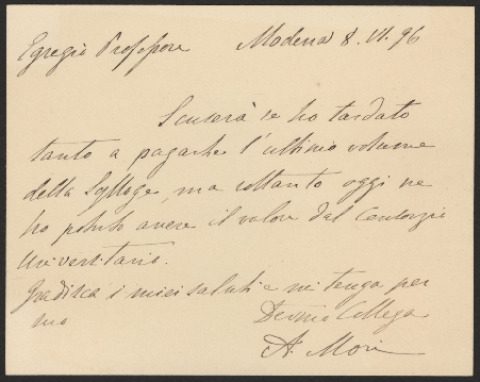 Egregio Professore Modena 8. VI. 96
Scuserà se ho tardato
tanto a pagarle l'ultimo volume
della Sylloge, ma soltanto oggi ne
ho potuto avere il valore dal Consorzio
Universitario.
Gradisca i miei saluti e mi tenga per
suo Devmo Collega
A. Mori